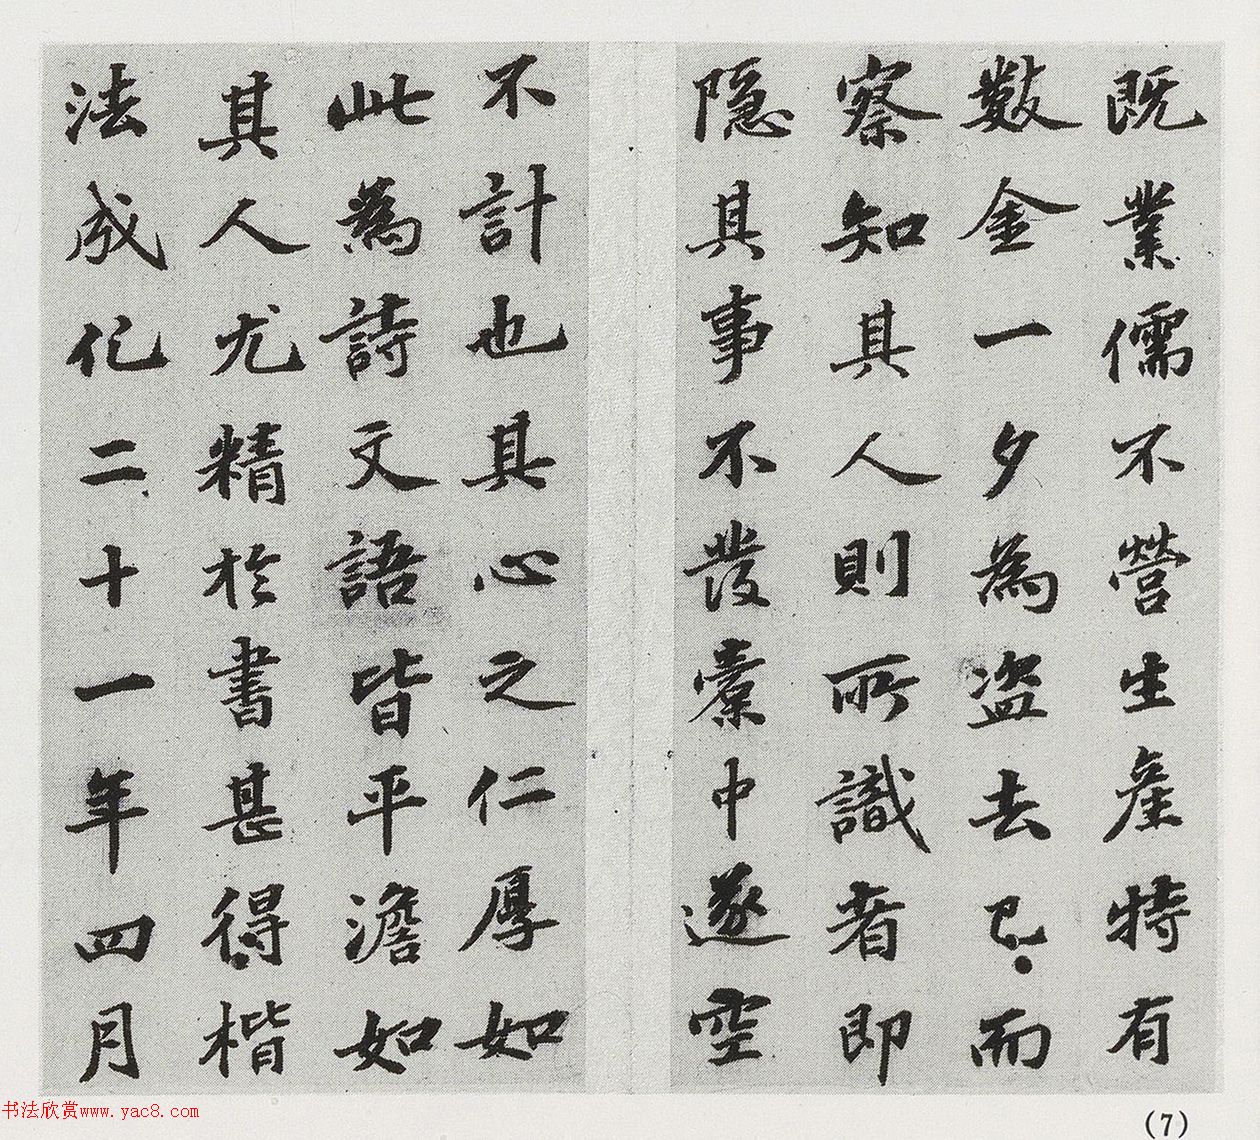 既業儒不營生產特有
數金一夕為盜去已而
察知其人則所識者即
隱其事不發橐中遂空
不計也其心之仁厚如
此為詩文語皆平澹如
其人尤精於書甚得楷
法成化二十一年四月
书法欣赏www.yac8.com
(7)